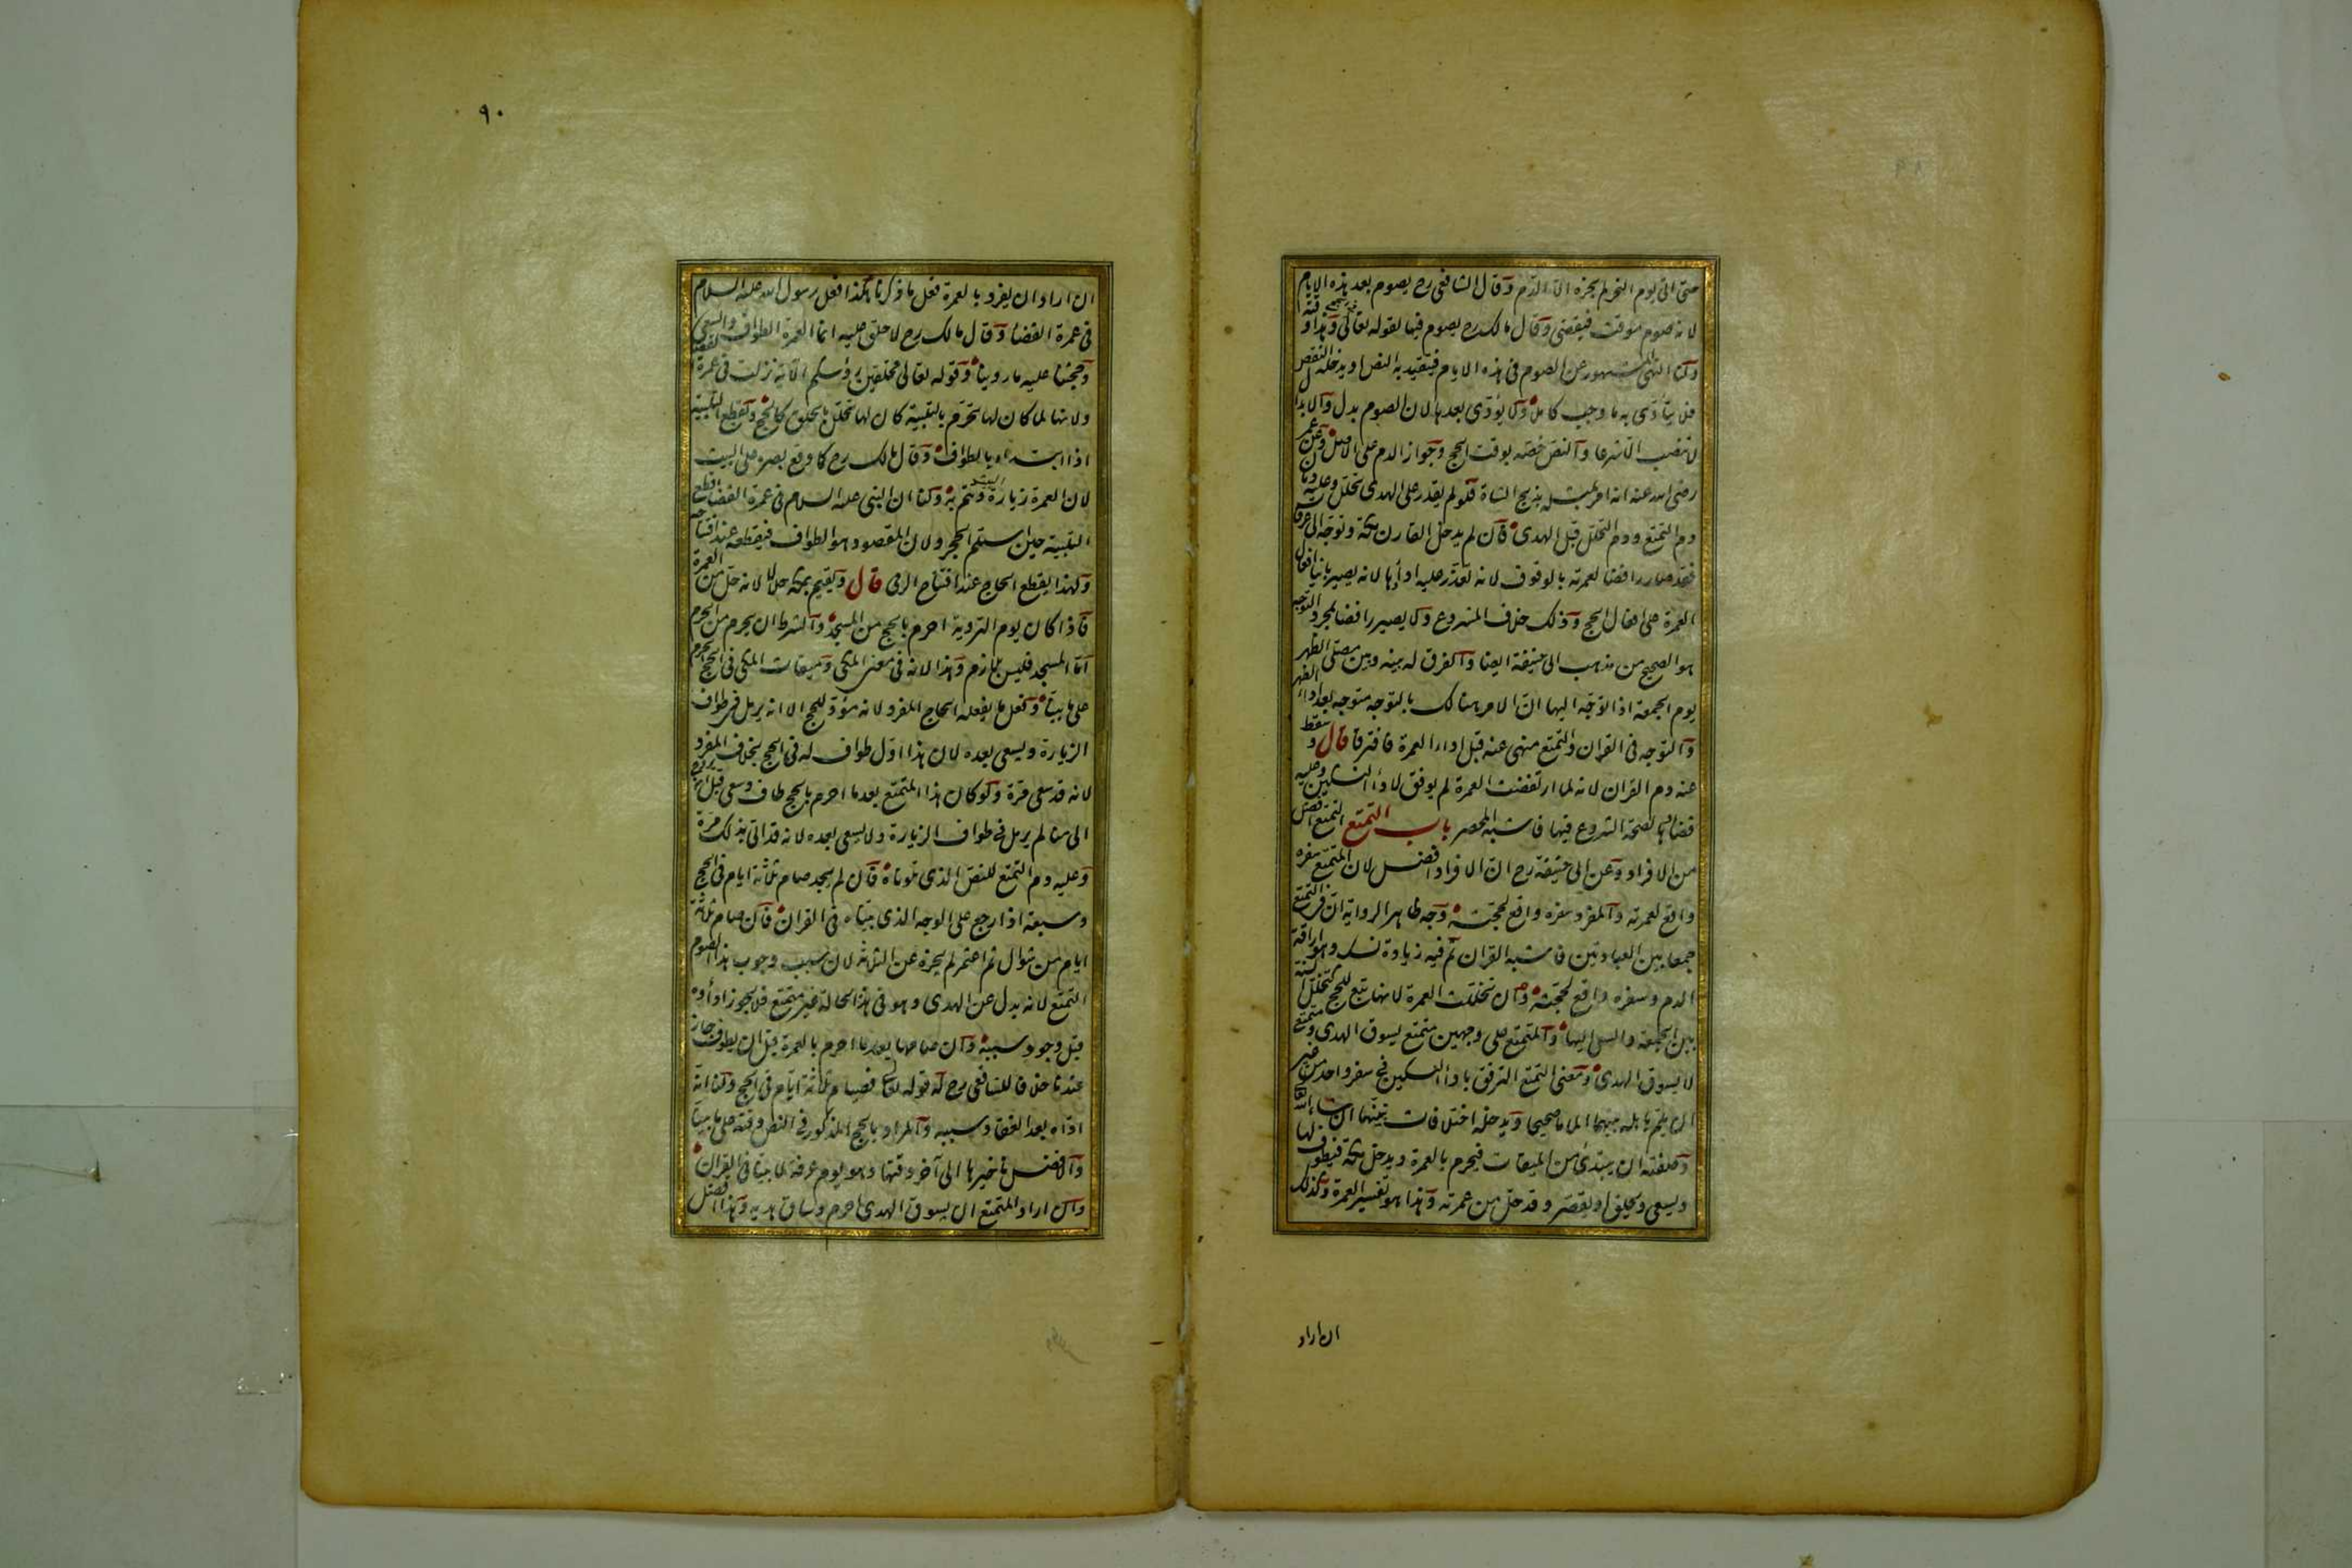 حتى اتى يوم النحر لم يجزه الا الدم وقال الشافعى رح يصوم بعد هذه الايام
لانه صوم موقت فيقضى وقال مالك رح يصوم فيها لقوله تعالى
ولنا النهى المشهور عن الصوم فى هذه الايام فيتقيد به النص او يدخله النقص
فلا يتأدى به ما وجب كاملا ولا يؤدى بعدها لان الصوم بدل والابدال
لا تنصب الا شرعا والنص خصه بوقت الحج وجواز الدم على الاصل وعن عمر
رضى الله عنه انه امر فى مثله بذبح الشاة فلو لم يقدر على الهدى تحلل وعليه دمان
دم التمتع ودم التحلل قبل الهدى فان لم يدخل القارن مكة وتوجه الى عرفات
فقد صار رافضا لعمرته بالوقوف لانه تعذر عليه اداؤها لانه يصير بانيا افعال
العمرة على افعال الحج وذلك خلاف المشروع ولا يصير رافضا بمجرد التوجه
هو الصحيح من مذهب ابى حنيفة ايضا والفرق له بينه وبين مصلى الظهر
يوم الجمعة اذا توجه اليها ان الامر هنالك بالتوجه متوجه بعد اداء الظهر
والتوجه فى القران والتمتع منهى عنه قبل اداء العمرة فافترقا قال وسقط
عنه دم القران لانه لما ارتفضت العمرة لم يوفق لاداء النسكين وعليه
قضاؤها لصحة الشروع فيها فاشبه المحصر باب التمتع التمتع افضل
من الافراد وعن ابى حنيفة رح ان الافراد افضل لان المتمتع سفره
واقع لعمرته والمفرد سفره واقع لحجته وجه ظاهر الرواية ان فى التمتع
جمعا بين العبادتين فاشبه القران ثم فيه زيادة نسك وهو اراقة
الدم وسفره واقع لحجته وان تخللت العمرة لانها تبع للحج كتخلل السنة
بين الجمعة والسعى اليها والمتمتع على وجهين متمتع يسوق الهدى ومتمتع
لا يسوق الهدى ومعنى التمتع الترفق باداء النسكين فى سفر واحد من غير
ان يلم باهله بينهما الماما صحيحا ويدخله اختلافات نبينها ان شاء الله تعالى
وصفته ان يبتدئ من الميقات فيحرم بالعمرة ويدخل مكة فيطوف لها
ويسعى ويحلق او يقصر وقد حل من عمرته وهذا هو تفسير العمرة وكذلك
ان اراد
٩٠
ان اراد ان يفرد بالعمرة فعل ما ذكرنا هكذا فعل رسول الله عليه السلام
فى عمرة القضاء وقال مالك رح لا حلق عليه انما العمرة الطواف والسعى
وحجتنا عليه ما روينا وقوله تعالى محلقين رؤسكم الآية نزلت فى عمرة القضاء
ولانها لما كان لها تحرم بالتلبية كان لها تحلل بالحلق كالحج ويقطع التلبية
اذا ابتدأ بالطواف وقال مالك رح كما وقع بصره على البيت
لان العمرة زيارة البيت وتتم به ولنا ان النبى عليه السلام فى عمرة القضاء قطع
التلبية حين استلم الحجر ولان المقصود هو الطواف فيقطعه عند افتتاحه
ولهذا يقطع الحاج عند افتتاح الرمى قال ويقيم بمكة حلالا لانه حل من العمرة
فاذا كان يوم التروية احرم بالحج من المسجد والشرط ان يحرم من الحرم
اما المسجد فليس بلازم وهذا لانه فى معنى المكى وميقات المكى فى الحج الحرم
على ما بينا وفعل ما يفعله الحاج المفرد لانه مؤد للحج الا انه يرمل فى طواف
الزيارة ويسعى بعده لان هذا اول طواف له فى الحج بخلاف المفرد
لانه قد سعى مرة ولو كان هذا المتمتع بعد ما احرم بالحج طاف وسعى قبل ان يروح
الى منا لم يرمل فى طواف الزيارة ولا يسعى بعده لانه قد اتى بذلك مرة
وعليه دم التمتع للنص الذى تلوناه فان لم يجد صام ثلاثة ايام فى الحج
وسبعة اذا رجع على الوجه الذى بيناه فى القران فان صام ثلاثة
ايام من شوال ثم اعتمر لم يجزه عن الثلاثة لان سبب وجوب هذا الصوم
التمتع لانه بدل عن الهدى وهو فى هذه الحالة غير متمتع فلا يجوز اداؤه
قبل وجود سببه وان صامها بعد ما احرم بالعمرة قبل ان يطوف جاز
عندنا خلافا للشافعى رح له قوله تعالى فصيام ثلاثة ايام فى الحج ولنا انه
اداه بعد انعقاد سببه والمراد بالحج المذكور فى النص وقته على ما بينا
والافضل تاخيرها الى آخر وقتها وهو يوم عرفة لما بينا فى القران
وان اراد المتمتع ان يسوق الهدى احرم وساق هديه وهذا افضل